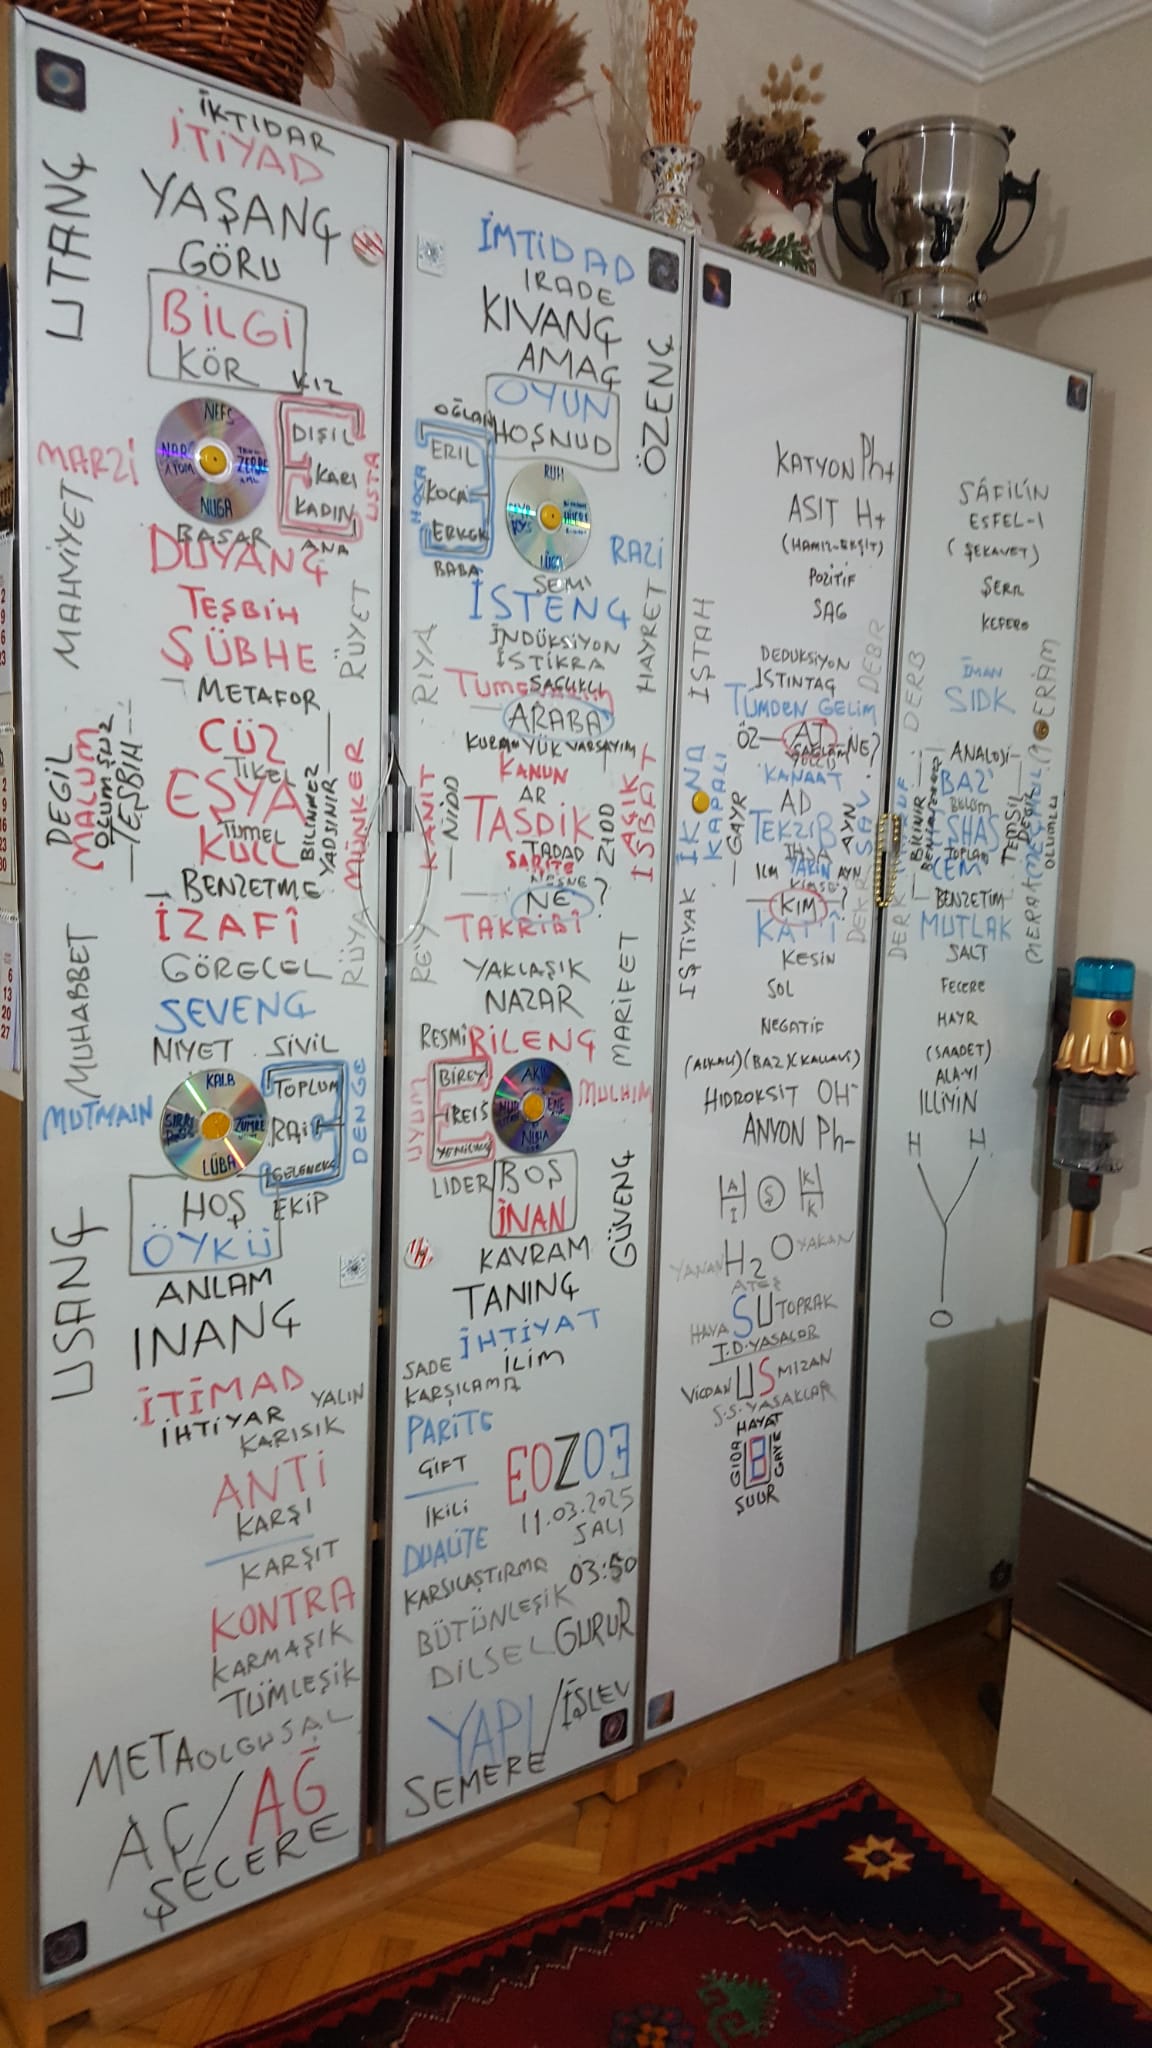 İKTİDAR
İTİYAD
YAŞANÇ
GÖRÜ
BİLGİ
KÖR
UTANÇ
KIZ
DIŞIL
KARI
KADIN
ANA
USTA
NEFS
NUGA
MARZİ
MAHVİYET
BASAR
DUYANÇ
TEŞBİH
ŞÜBHE
METAFOR
RÜYET
CÜZ
TİKEL
EŞYA
TÜMEL
KÜLL
BENZETME
DEĞİL
MALUM
OLUMSUZ
TEŞBİH
BİLİNMEZ
YADSINIR
MÜNKER
RÜYA
İZAFİ
GÖRECEL
MUHABBET
SEVENÇ
NİYET
SİVİL
KALB
ZÜMRE
LÜBA
TOPLUM
RAİ
GELENEK
EKİP
DENGE
MUTMAİN
HOŞ
ÖYKÜ
ANLAM
INANÇ
USANÇ
İTİMAD
YALIN
İHTİYAR
KARIŞIK
ANTİ
KARŞI
KARŞIT
KONTRA
KARMAŞIK
TÜMLEŞİK
METAOLGUSAL
AÇ/AĞ
ŞECERE
İMTİDAD
IRADE
KIVANÇ
AMAÇ
OYUN
HOŞNUD
ÖZENÇ
OĞLAN
ERIL
KOCA
ERKEK
BABA
HOCA
RUH
RAZI
SEMİ
İSTENÇ
İNDÜKSİYON
İSTİKRA
SAÇLIKLI
ARABA
KURMUYÜK VARSAYIM
KANUN
AR
TASDİK
TADAD
NESNE
NE ?
TAKRİBİ
RİYA
KANIT
NİDD
REY
HAYRET
AÇIK
İSBAT
ZIDD
YAKLAŞIK
NAZAR
MARİFET
RESMİ
BİLENÇ
BİREY
REİS
LIDER
UYUM
AKIL
MÜLHİM
BOŞ
İNAN
KAVRAM
TANINÇ
GÜVENÇ
İHTİYAT
SADE
İLİM
KARŞILAMA
PARİTE
ÇİFT
İKİLİ
DUALİTE
KARŞILAŞTIRMA
EOZOE
11.03.2025
SALI
03:50
BÜTÜNLEŞİK
DİLSEL
GURUR
YAPI/İŞLEV
SEMERE
KATYON Ph+
ASIT H+
(HAMIZ-EKŞİT)
POZİTİF
SAG
DEDUKSİYON
ISTINTAÇ
TÜMDEN GELİM
ÖZ
AT
NE?
KANAAT
AD
TEKZİB
ILM
YAKIN
AYN
KİMSE
KIM ?
KAT'İ
KESİN
SOL
NEGATİF
(ALKALİ)(BAZ)(KALLAVİ)
HIDROKSIT OH-
ANYON Ph-
IŞTAH
İKNA
KAPALI
GAYR
IŞTIYAK
AYN
SAV
DEBR
A I Ş K K
YANAN H2O YAKAN
ATEŞ
HAVA SU TOPRAK
T.D.YASALAR
VİCDAN US MİZAN
S.S. YASAKLAR
HAYAT
GIDA
GAYE
ŞUUR
SÂFİLÎN
ESFEL-I
(ŞEKAVET)
ŞERR
KEFERE
DERB
İMAN
SIDK
ANALOJİ
BAZ'
BÖLÜM
EŞHAS
TOPLAM
CEM'
BENZETİM
MUTLAK
SALT
BİLİNİR
TEMSİL
DEĞİL
OLUMLU
MERAK
MEÇHUL
FECERE
HAYR
(SAADET)
ALA-YI
ILLİYİN
H H
O